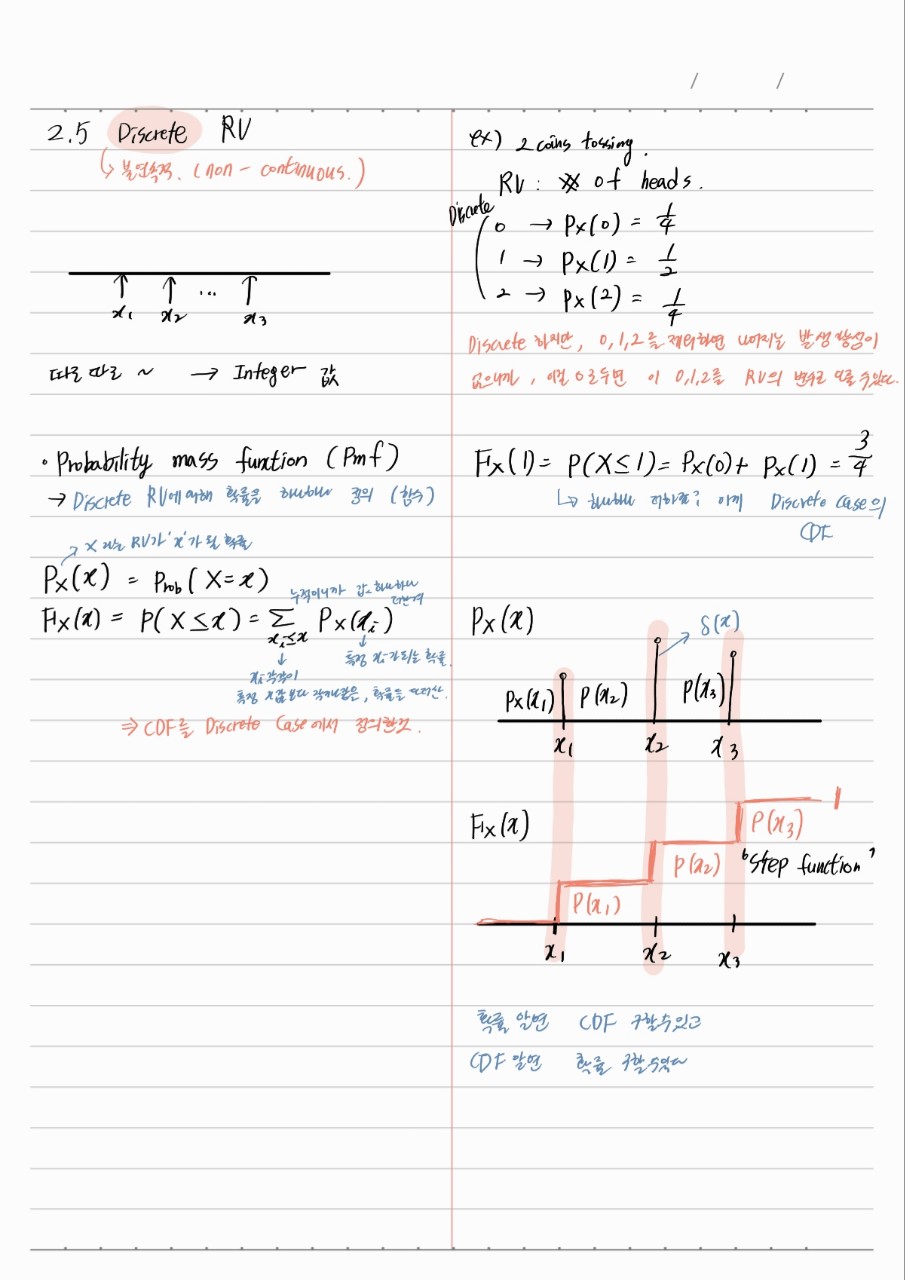 / /
2.5 Discrete RV
↳ 불연속적. (non - continuous.)
↑ ↑ ... ↑
x₁ x₂ x₃
따로 따로 ~ → Integer 값
• Probability mass function (Pmf)
→ Discrete RV에 의해 확률을 하나하나 정의 (함수)
→ X 라는 RV가 'x'가 될 확률
Pₓ(x) = Prob (X=x)
누적이니까 값 하나하나 더한격
Fₓ(x) = P(X≤x) = Σ xᵢ≤x Pₓ(xᵢ)
특정 xᵢ가 되는 확률.
xᵢ 각각이
특정 x값 보다 작거나 같은, 확률을 더한다.
⇒ CDF를 Discrete Case에서 정의한것.
ex) 2 coins tossing.
RV : # of heads.
Discrete
0 → Pₓ(0) = 1/4
1 → Pₓ(1) = 1/2
2 → Pₓ(2) = 1/4
Discrete 하지만, 0,1,2를 제외하면 나머지는 발생 가능성이
없으니까, 이걸 0로두면 이 0,1,2를 RV의 변수로 다룰 수있다.
Fₓ(1) = P(X≤1) = Pₓ(0) + Pₓ(1) = 3/4
↳ 하나하나 더하죠? 이게 Discrete Case의
CDF
Pₓ(x)
δ(x)
Pₓ(x₁) P(x₂) P(x₃)
x₁ x₂ x₃
1
Fₓ(x)
P(x₃)
P(x₂) "Step function"
P(x₁)
x₁ x₂ x₃
확률 알면 CDF 구할수있고
CDF 알면 확률 구할수있다